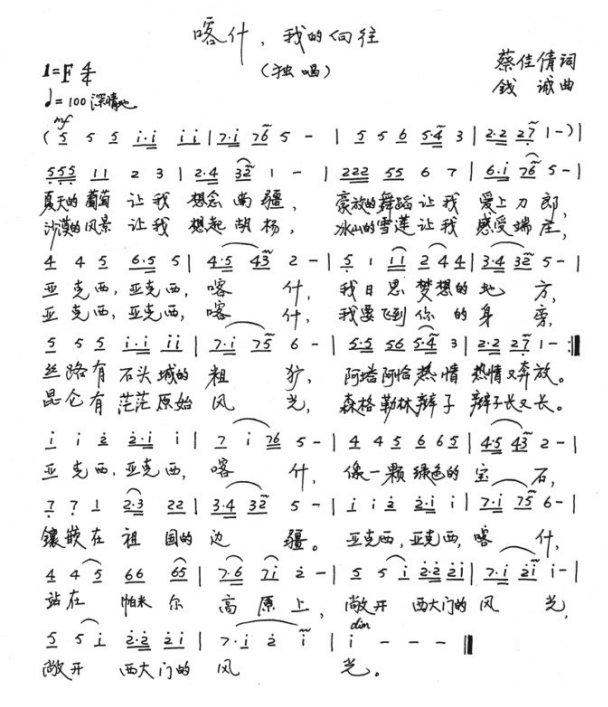 喀什，我的向往
（独唱）
1=F 4/4
蔡佳倩词
♩=100 深情地
钱诚曲
mf
(5 5 5 i·i i i | 7·i 76 5 - | 5 5 6 5·4 3 | 2·2 27 1 -) |
555 11 2 3 | 2·4 32 1 - | 222 55 6 7 | 6·i 76 5 - |
夏天的葡萄 让我 想念南疆， 豪放的舞蹈让我 爱上刀郎，
沙漠的风景 让我 想起胡杨， 冰山的雪莲让我 感受端庄，
4 4 5 6·5 5 | 4·5 43 2 - | 5 1 11 2 4 4 | 3·4 32 5 - |
亚克西，亚克西， 喀 什， 我日思梦想的地 方，
亚克西，亚克西， 喀 什， 我要飞到你的身 旁，
5 5 5 i·i ii | 7·i 75 6 - | 5·5 56 5·4 3 | 2·2 27 1 - :‖
丝路有 石头城的 粗 犷， 阿塔阿恰热情 热情又奔放。
昆仑有 茫茫原始 风 光， 森格勒林辫子 辫子长又长。
i i 2 2·i i | 7 i 76 5 - | 4 4 5 6 65 | 4·5 43 2 - |
亚克西，亚克西， 喀 什， 像一颗绿色的 宝 石，
7 7 1 2·3 22 | 3·4 32 5 - | i i 2 2·i i | 7·i 75 6 - |
镶嵌在 祖 国的 边 疆。 亚克西，亚克西，喀 什，
4 4 5 66 65 | 7·6 7i 2 - | 5 5 i 2·2 2i | 7·i 2i i - |
站在 帕米尔 高原上， 敞开 西大门的风 光，
dim
5 5 i 2·2 2i | 7·i 2 i | i - - - ‖
敞开 西大门的 风 光。